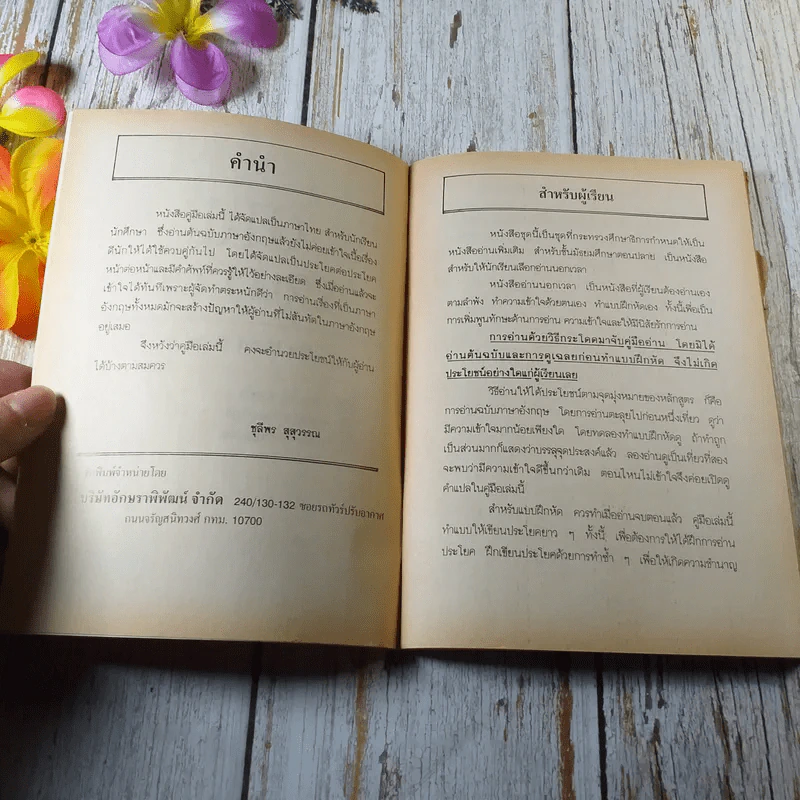 คำนำ
หนังสือคู่มือเล่มนี้ ได้จัดแปลเป็นภาษาไทย สำหรับนักเรียน
นักศึกษา ซึ่งอ่านต้นฉบับภาษาอังกฤษแล้วยังไม่ค่อยเข้าใจเนื้อเรื่อง
ดีนักให้ได้ใช้ควบคู่กันไป โดยได้จัดแปลเป็นประโยคต่อประโยค
หน้าต่อหน้าและมีคำศัพท์ที่ควรรู้ให้ไว้อย่างละเอียด ซึ่งเมื่ออ่านแล้วจะ
เข้าใจได้ทันทีเพราะผู้จัดทำตระหนักดีว่า การอ่านเรื่องที่เป็นภาษา
อังกฤษทั้งหมดมักจะสร้างปัญหาให้ผู้อ่านที่ไม่สันทัดในภาษาอังกฤษ
อยู่เสมอ
จึงหวังว่าคู่มือเล่มนี้ คงจะอำนวยประโยชน์ให้กับผู้อ่าน
ได้บ้างตามสมควร
ชุลีพร สุสุวรรณ
พิมพ์จำหน่ายโดย
บริษัทอักษราพิพัฒน์ จำกัด 240/130-132 ซอยรถทัวร์ปรับอากาศ
ถนนจรัญสนิทวงศ์ กทม. 10700
สำหรับผู้เรียน
หนังสือชุดนี้เป็นชุดที่กระทรวงศึกษาธิการกำหนดให้เป็น
หนังสืออ่านเพิ่มเติม สำหรับชั้นมัธยมศึกษาตอนปลาย เป็นหนังสือ
สำหรับให้นักเรียนเลือกอ่านนอกเวลา
หนังสืออ่านนอกเวลา เป็นหนังสือที่ผู้เรียนต้องอ่านเอง
ตามลำพัง ทำความเข้าใจด้วยตนเอง ทำแบบฝึกหัดเอง ทั้งนี้เพื่อเป็น
การเพิ่มพูนทักษะด้านการอ่าน ความเข้าใจและให้มีนิสัยรักการอ่าน
การอ่านด้วยวิธีกระโดดมาจับคู่มืออ่าน โดยมิได้
อ่านต้นฉบับและการดูเฉลยก่อนทำแบบฝึกหัด จึงไม่เกิด
ประโยชน์อย่างใดแก่ผู้เรียนเลย
วิธีอ่านให้ได้ประโยชน์ตามจุดมุ่งหมายของหลักสูตร ก็คือ
การอ่านฉบับภาษาอังกฤษ โดยการอ่านตะลุยไปก่อนหนึ่งเที่ยว ดูว่า
มีความเข้าใจมากน้อยเพียงใด โดยทดลองทำแบบฝึกหัดดู ถ้าทำถูก
เป็นส่วนมากก็แสดงว่าบรรลุจุดประสงค์แล้ว ลองอ่านดูเป็นเที่ยวที่สอง
จะพบว่ามีความเข้าใจดีขึ้นกว่าเดิม ตอนไหนไม่เข้าใจจึงค่อยเปิดดู
คำแปลในคู่มือเล่มนี้
สำหรับแบบฝึกหัด ควรทำเมื่ออ่านจบตอนแล้ว คู่มือเล่มนี้
ทำแบบให้เขียนประโยคยาว ๆ ทั้งนี้ เพื่อต้องการให้ได้ฝึกการอ่าน
ประโยค ฝึกเขียนประโยคด้วยการทำซ้ำ ๆ เพื่อให้เกิดความชำนาญ